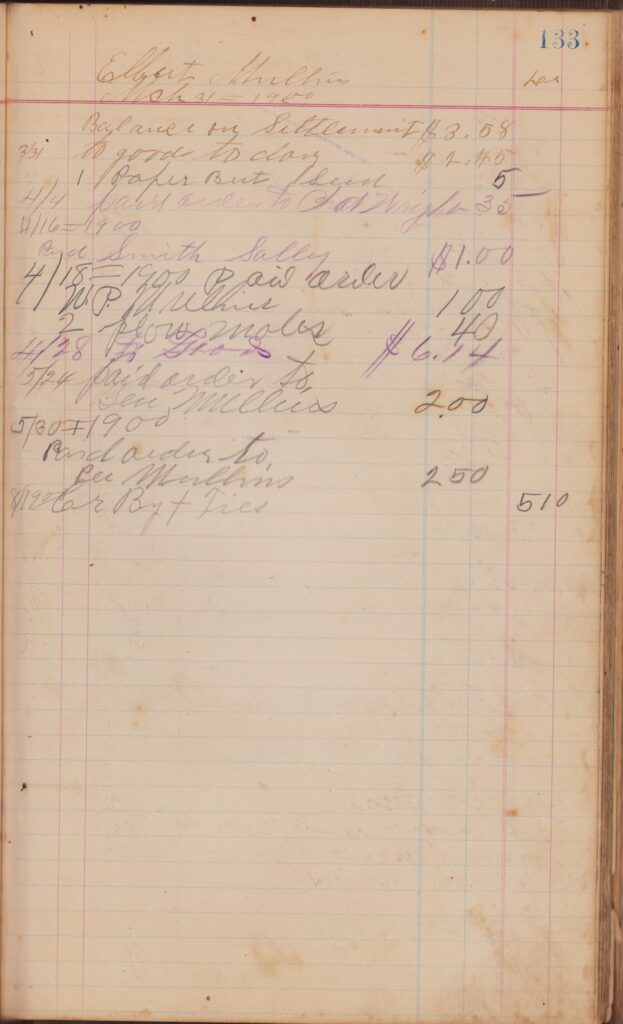 133
Elbert Mullins
Mch 31 = 1900
Balance on Settlement $3.58
3/31 to goods to day $2.45
1 Paper Beet Seed 5
4/4 paid order to Wright 35
4/16 = 1900
Payd Smith Sally $1.00
4/18 = 1900 Paid order
W. P. Mullins 100
2 plow moles 40
4/28 To Goods $6.14
5/24 paid order to
Lee Mullins 2.00
5/30 = 1900
Paid order to
Lee Mullins 250
Cr By + Ties 510